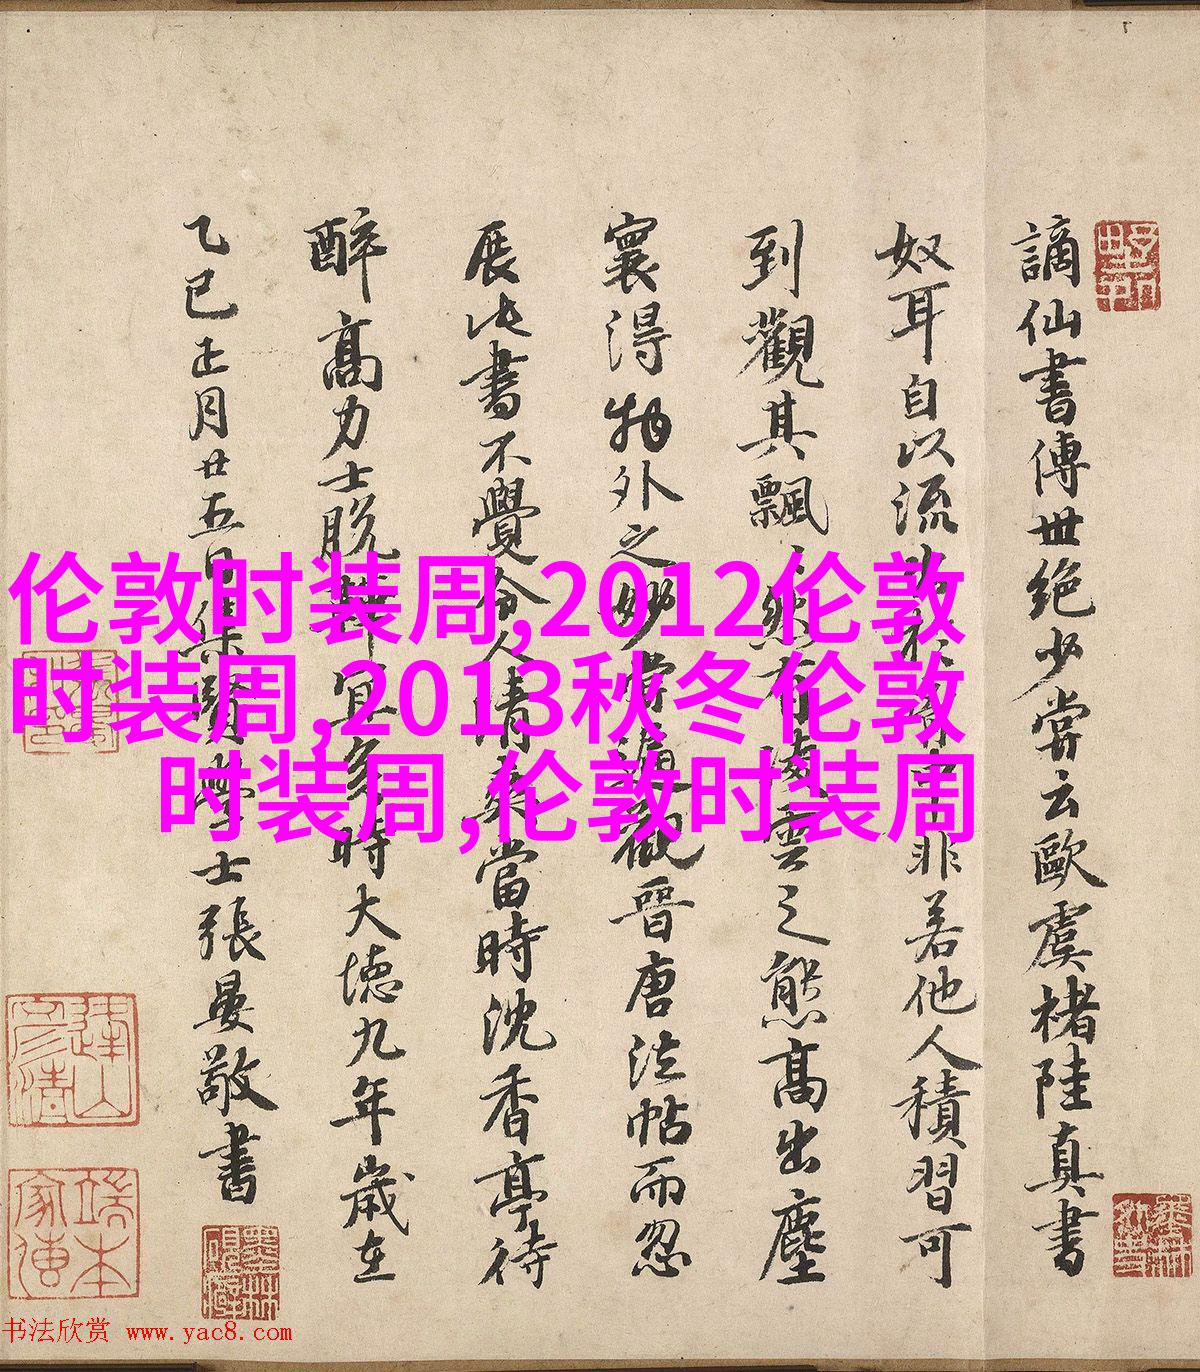 謫仙書傳世絕少嘗云歐虞褚陸真書
奴耳自以流非若他人積習可
到觀其飄飄然有凌雲之態高出塵
寰得物外之妙嘗遍觀晉唐法帖而忽
展此書不覺令人清爽當時沈香亭待
醉高力士脫鞾宜多時大德九年歲在
乙巳正月廿五日集賢學士張晏敬書
伦敦时装周,2012伦敦
时装周,2013秋冬伦敦
时装周,伦敦时装周
书法欣赏 www.yac8.com